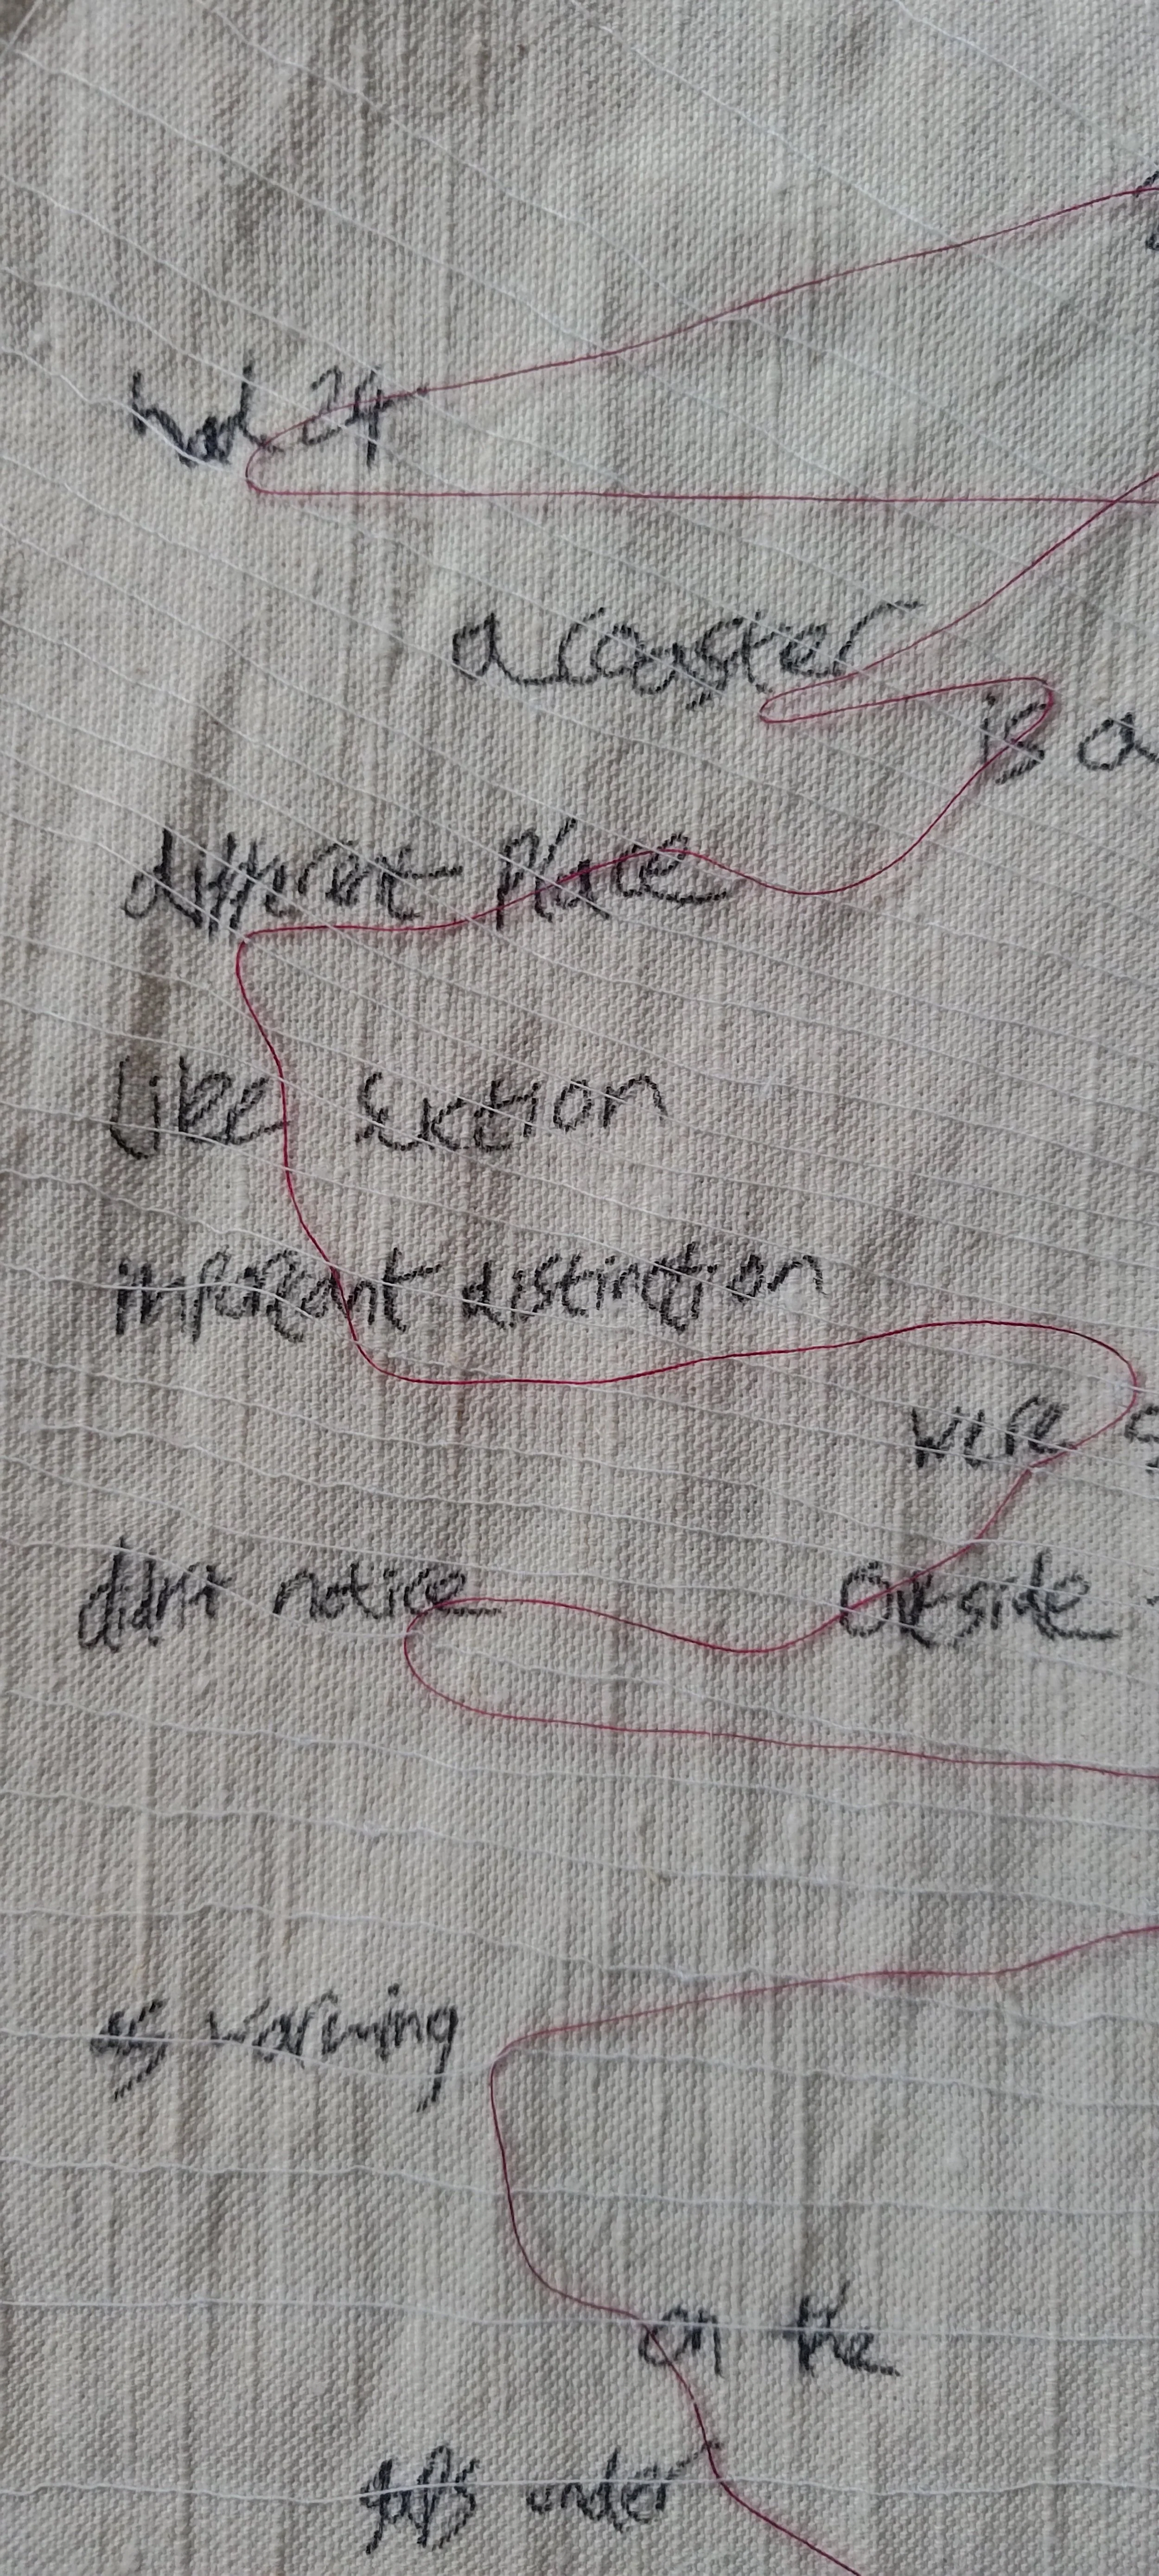 had 24
a coaster
is a
different place
like suction
important distinction
were
didn't notice outside
as warming
on the
gaps under